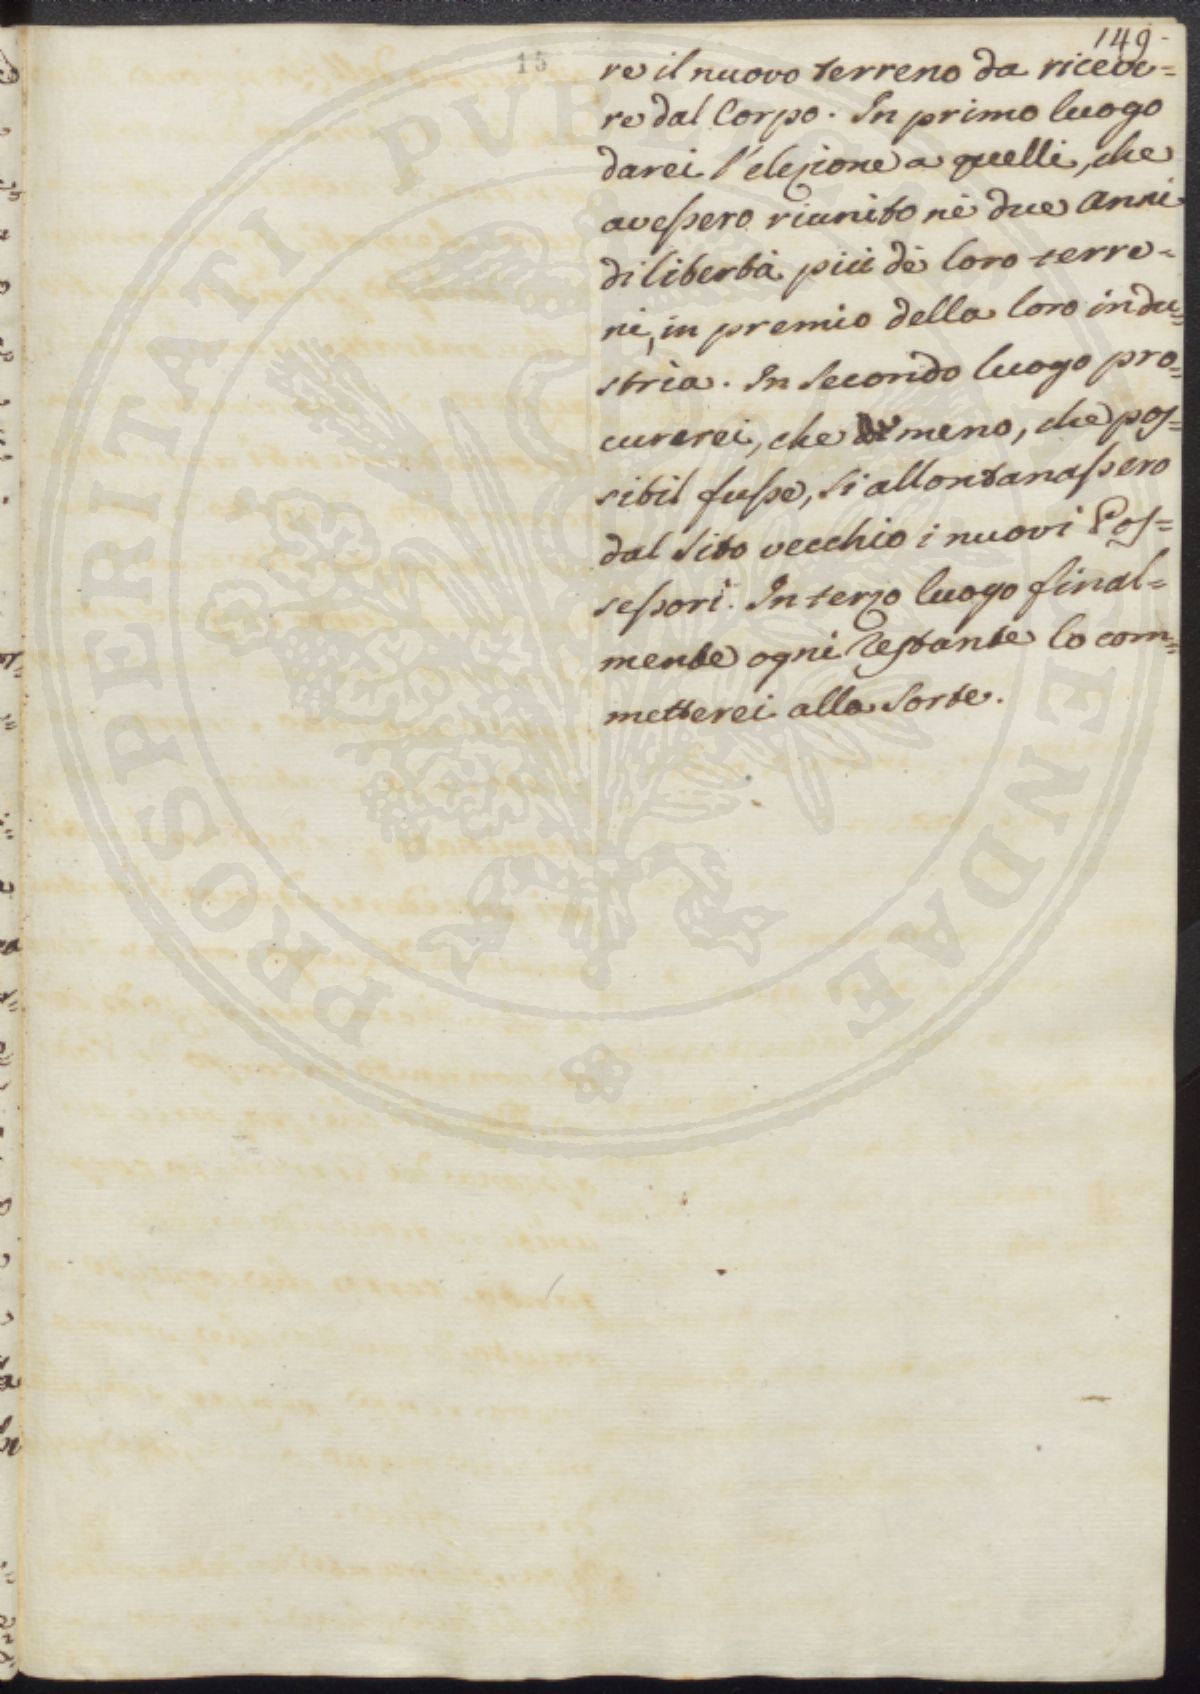 149.
15
re il nuovo terreno da riceve=
re dal Corpo. In primo luogo
darei l'elezione a quelli, che
avessero riunito nè due Anni
di libertà più dè loro terre=
ni, in premio della loro indu=
stria. In secondo luogo pro=
curerei, che meno, che pos=
sibil fusse, si allontanassero
dal sito vecchio i nuovi Pos=
sessori. In terzo luogo final=
mente ogni restante lo com=
metterei alla sorte.
PROSPERITATI PUBLICAE AUGENDAE